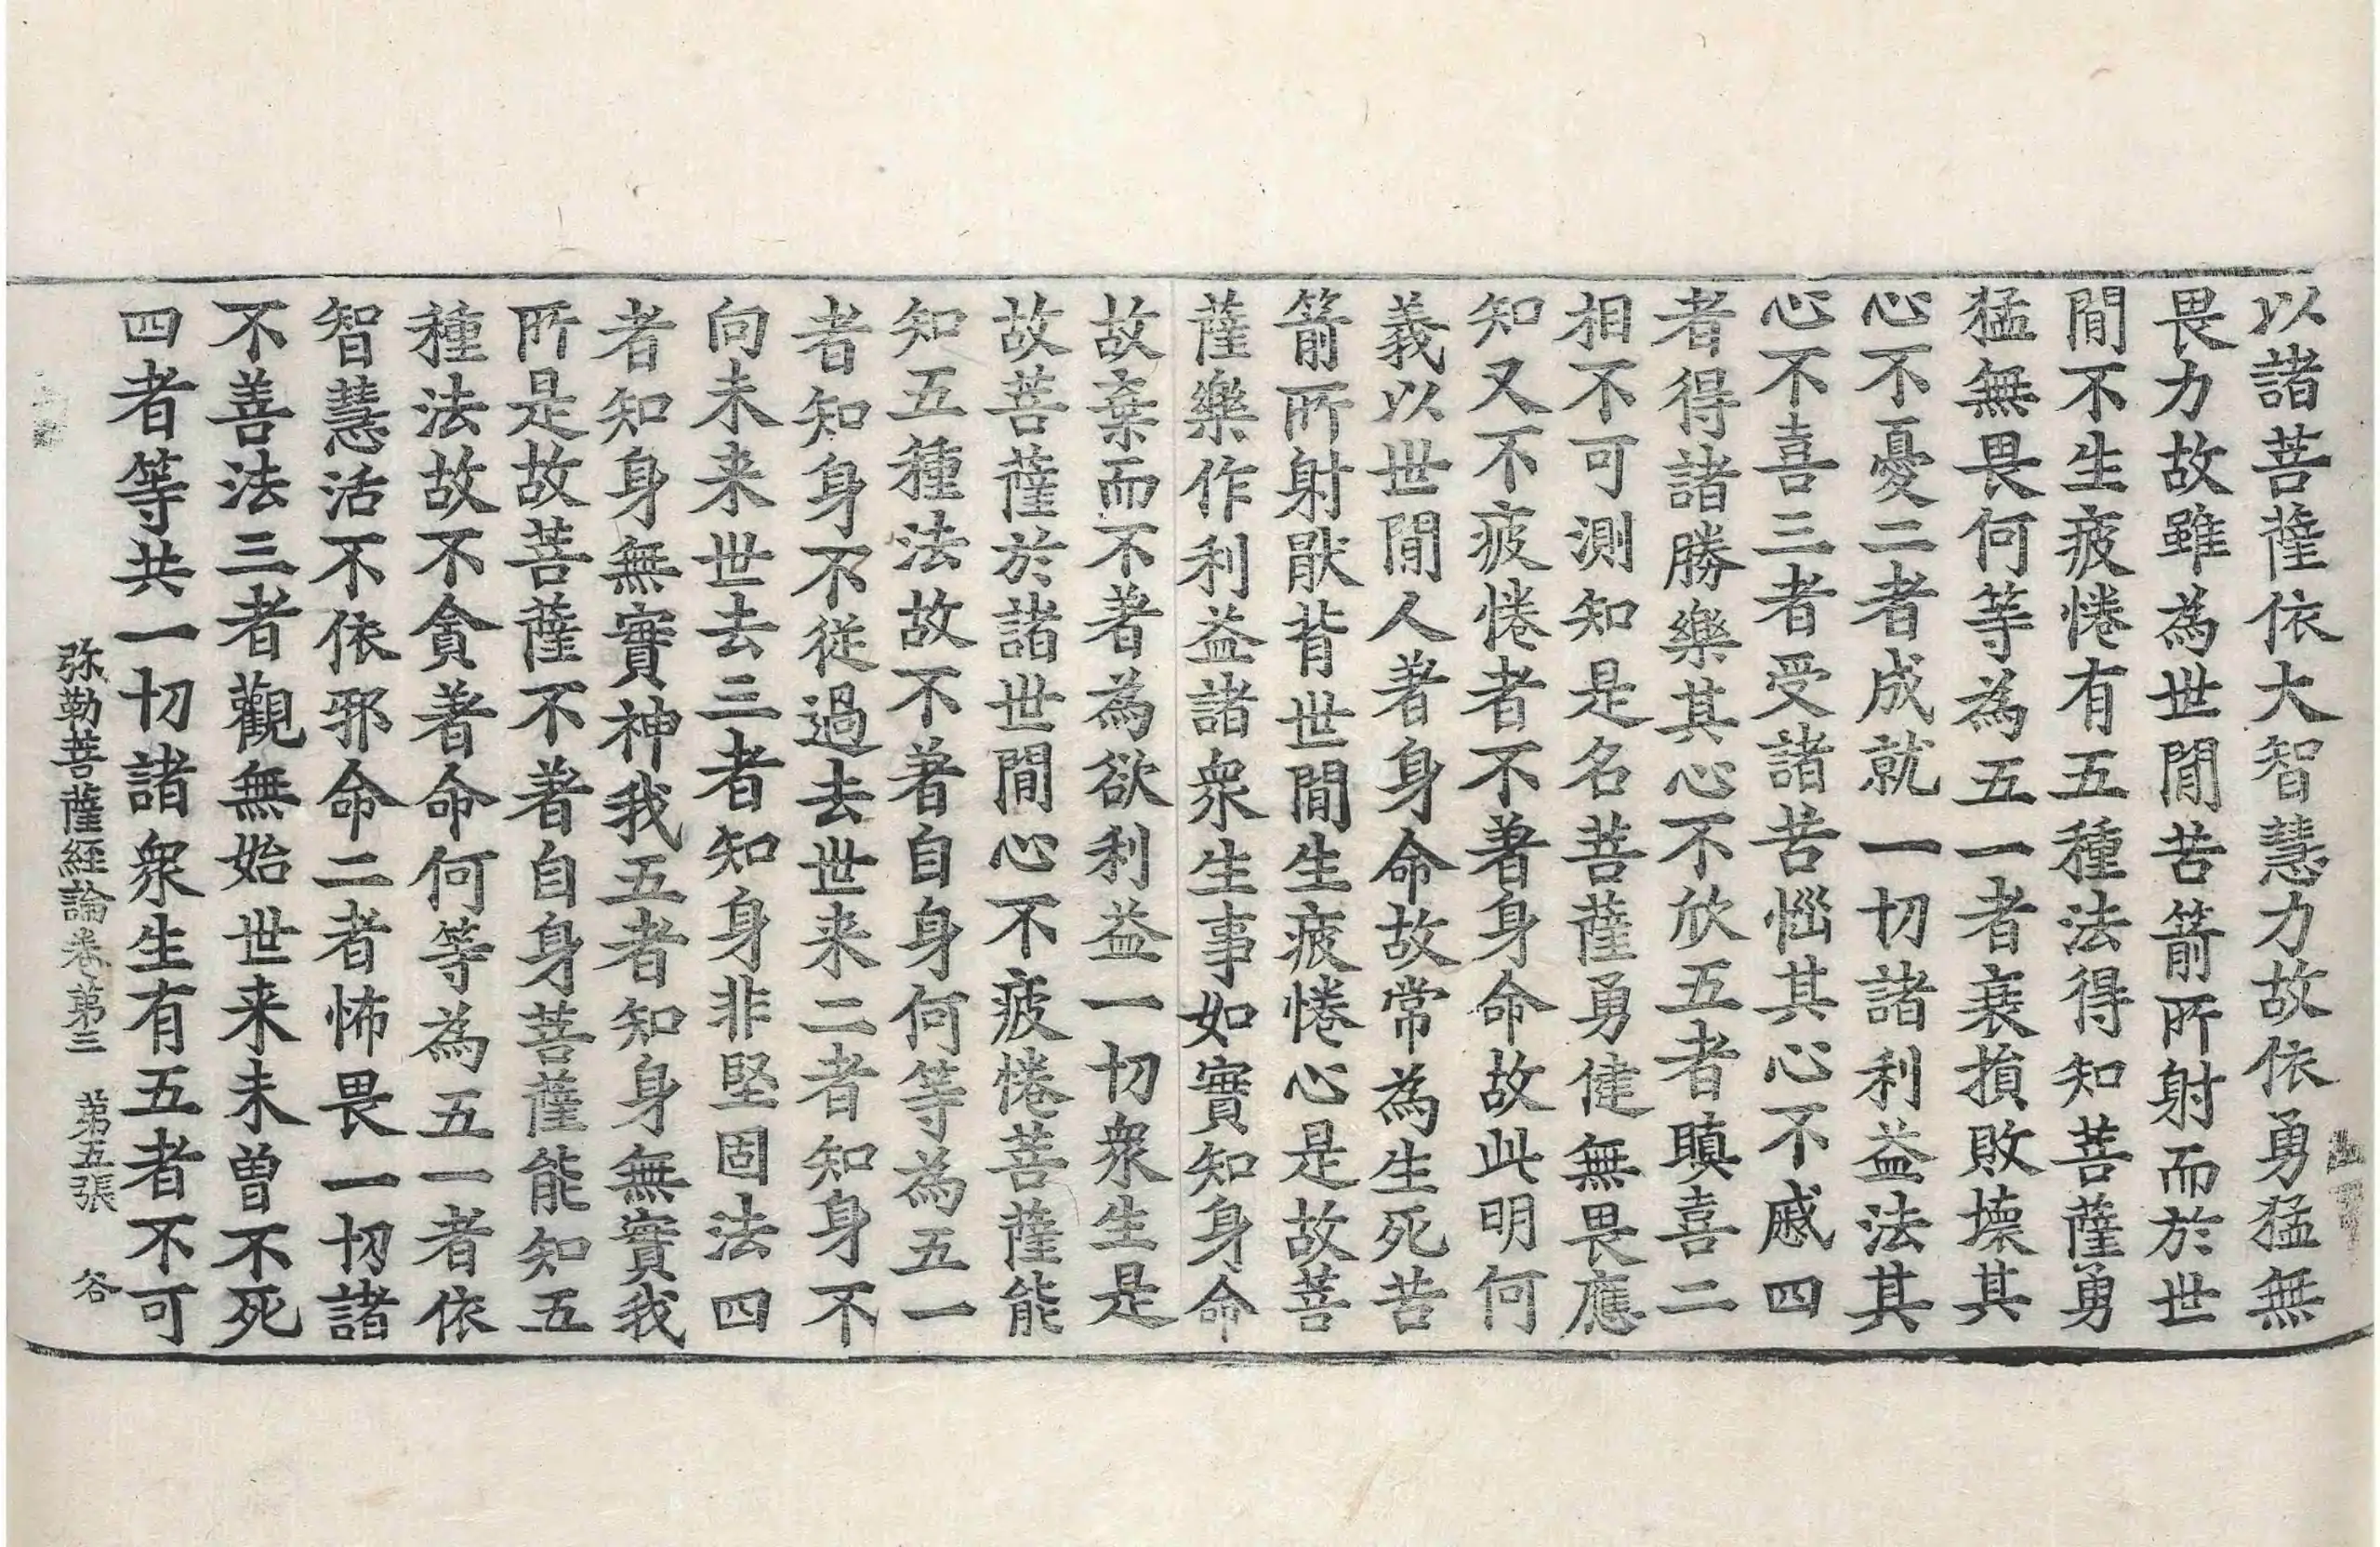 以諸菩薩依大智慧力故依勇猛無
畏力故雖為世間苦箭所射而於世
間不生疲惓有五種法得知菩薩勇
猛無畏何等為五一者衰損敗壞其
心不憂二者成就一切諸利益法其
心不喜三者受諸苦惱其心不慼四
者得諸勝樂其心不欣五者瞋喜二
相不可測知是名菩薩勇健無畏應
知又不疲惓者不著身命故此明何
義以世間人著身命故常為生死苦
箭所射猒背世間生疲惓心是故菩
薩樂作利益諸衆生事如實知身命
故棄而不著為欲利益一切衆生是
故菩薩於諸世間心不疲惓菩薩能
知五種法故不著自身何等為五一
者知身不従過去世来二者知身不
向未来世去三者知身非堅固法四
者知身無實神我五者知身無實我
所是故菩薩不著自身菩薩能知五
種法故不貪著命何等為五一者依
智慧活不依邪命二者怖畏一切諸
不善法三者觀無始世来未曽不死
四者等共一切諸衆生有五者不可
弥勒菩薩経論卷第三 第五張 谷